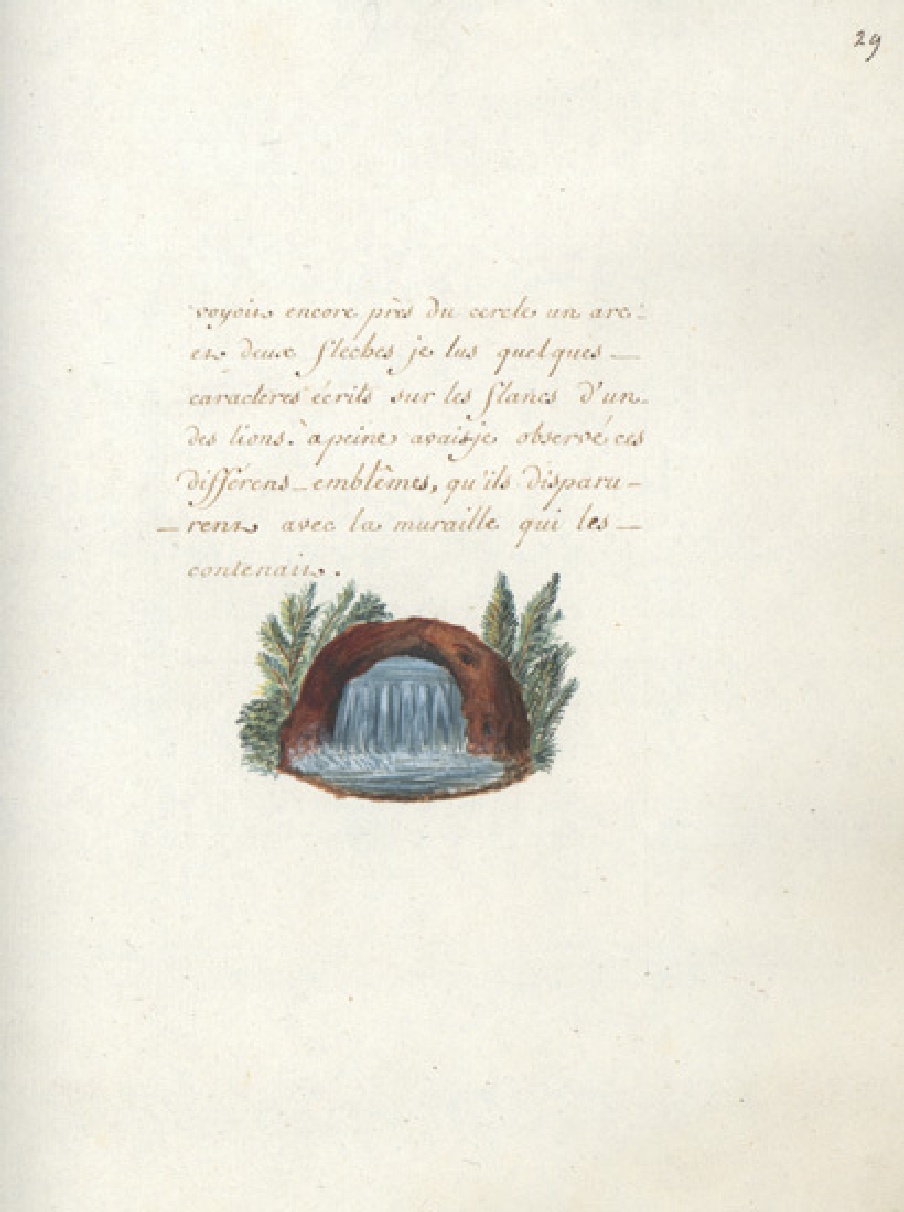 29
voyoit encore près du cercle un arc
et deux fleches je lus quelques
caracteres écrits sur les flancs d'un
des lions. à peine avaisje observé ces
différens emblêmes, qu'ils disparu-
-rent avec la muraille qui les
contenait.